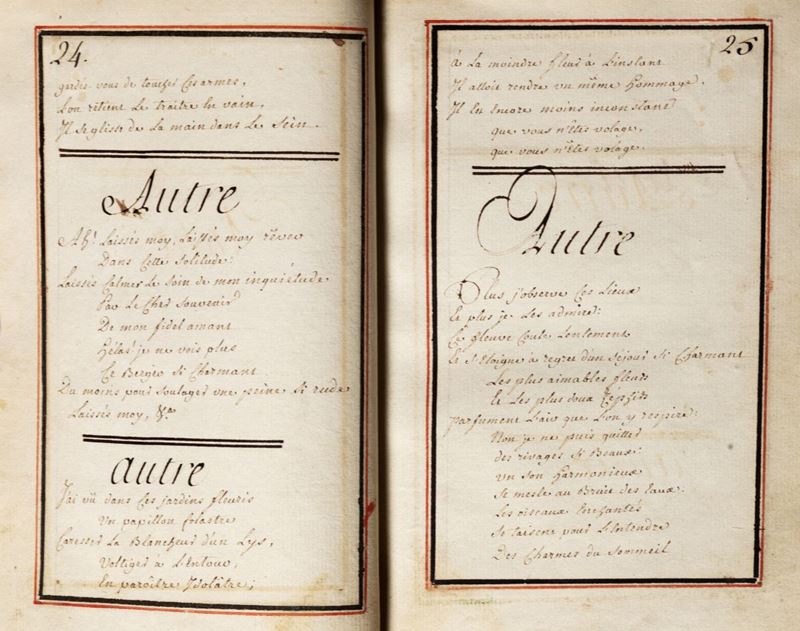 24.
gardés vous de toucher Ces armes,
L'on retient Le traitre En vain,
Il se glisse de La main dans Le Sein.
Autre
Ah! Laissés moy, Laissés moy rêver
Dans Cette Solitude:
Laissés Calmer Le Soin de mon inquiétude
Par Le Cher Souvenir
De mon fidel amant
Hélas! je ne vois plus
Ce Berger Si Charmant
Du moins pour Soulager une peine Si rude
Laissés moy, &ca
autre
J'ai vû dans Ces jardins fleuris
Un papillon folastre
Caresser La Blancheur d'un Lys,
Voltiger à L'Entour,
En paroître Idolâtre;
25
à La moindre fleur à L'instant
Il alloit rendre un même Hommage.
Il En Encore moins inconstant
que vous n'êtes volage,
que vous n'êtes volage.
Autre
Plus j'observe Ces Lieux
Et plus je Les admire:
Ce fleuve Coule Lentement
Et S'Eloigne à regret d'un Séjour Si Charmant
Les plus aimables fleurs
Et Les plus doux Zephirs
parfument L'air que L'on y respire:
Non je ne puis quitter
des rivages Si Beaux:
un Son Harmonieux
Se mesle au Bruit des Eaux:
Les oiseaux Enchantés
Se taisent pour L'Entendre
Des Charmes du Sommeil